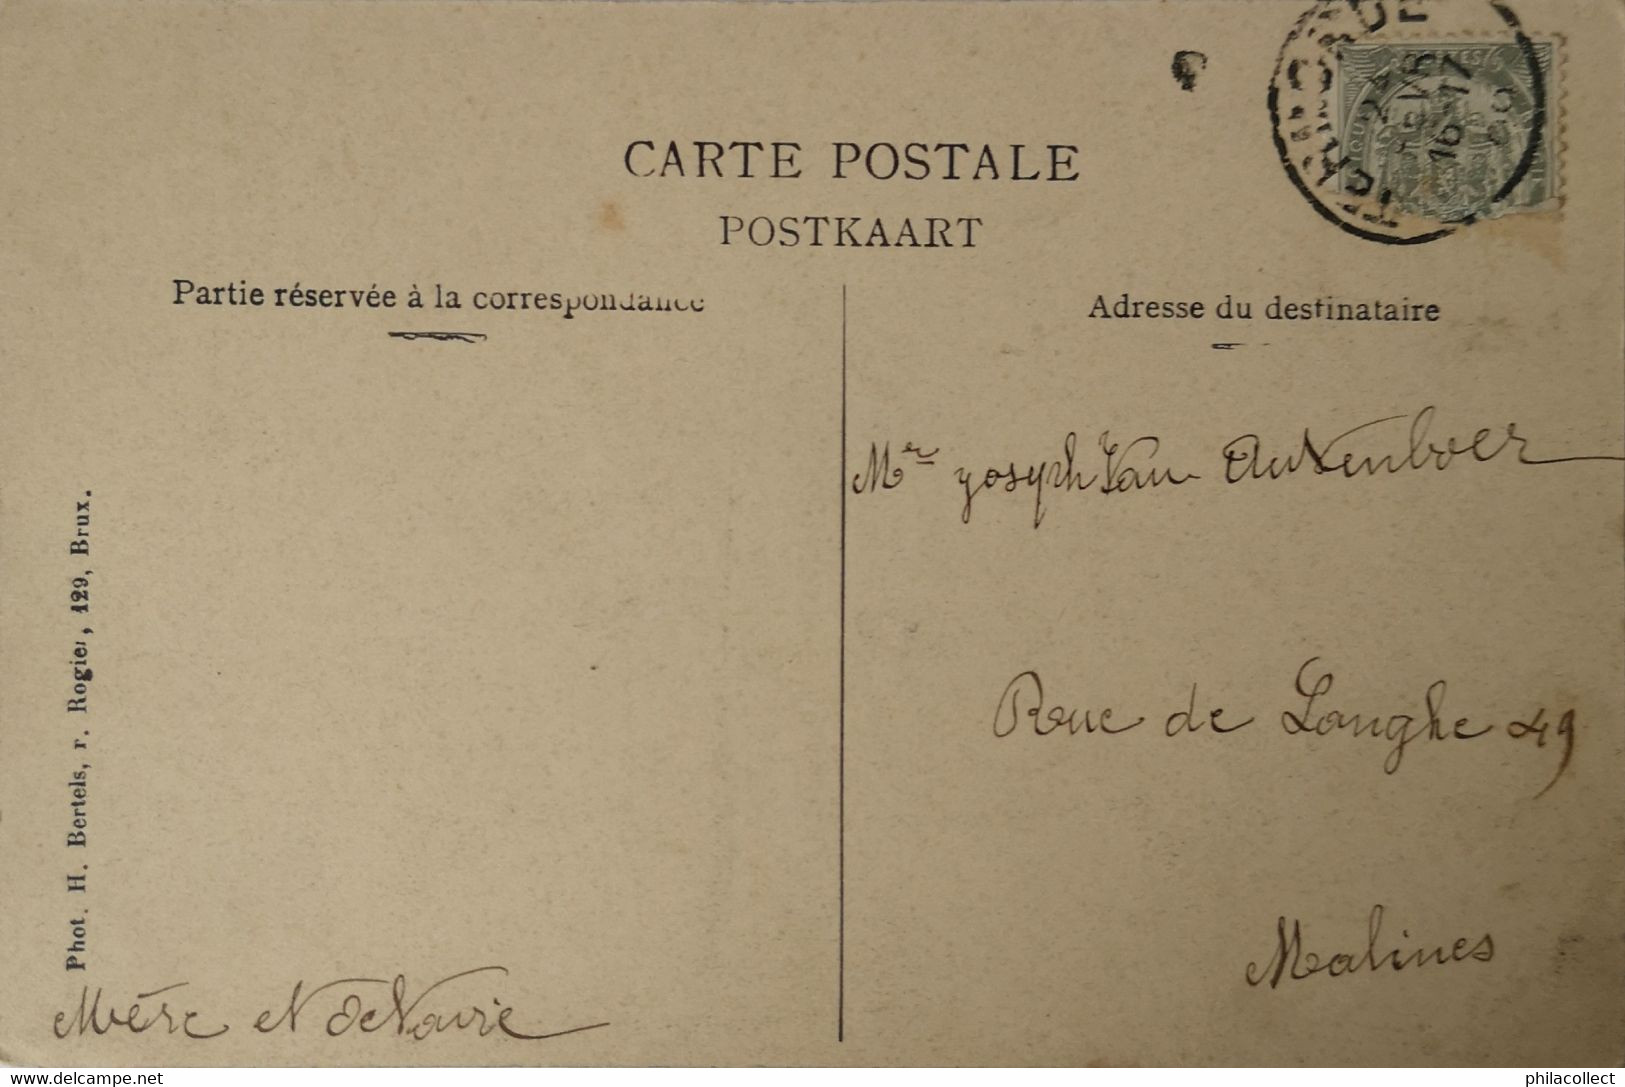 CARTE POSTALE
POSTKAART
Partie réservée à la correspondance
Adresse du destinataire
Mr Joseph Van Autenboer
Rue de Langhe 49
Malines
Phot. H. Bertels, r. Rogier, 129, Brux.
Mère et Octavie
TERVUEREN
24
16-17
philacollect
www.delcampe.net